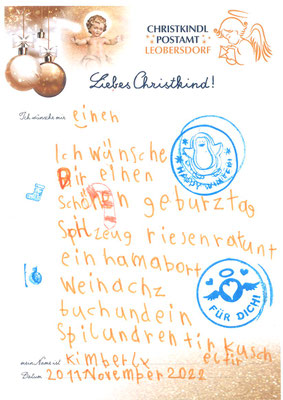 CHRISTKINDL
POSTAMT
LEOBERSDORF
Liebes Christkind!
Ich wünsche mir einen
Ich wünsche
Dir einen
schönen geburztag
Spilzeug riesenratunt
einhamabort
weinachz
buchundein
Spilundrentir kusch
eltir
mein Name ist Kimberly
Datum 2011 November 2022
HAPPY WINTER!
FÜR DICH!